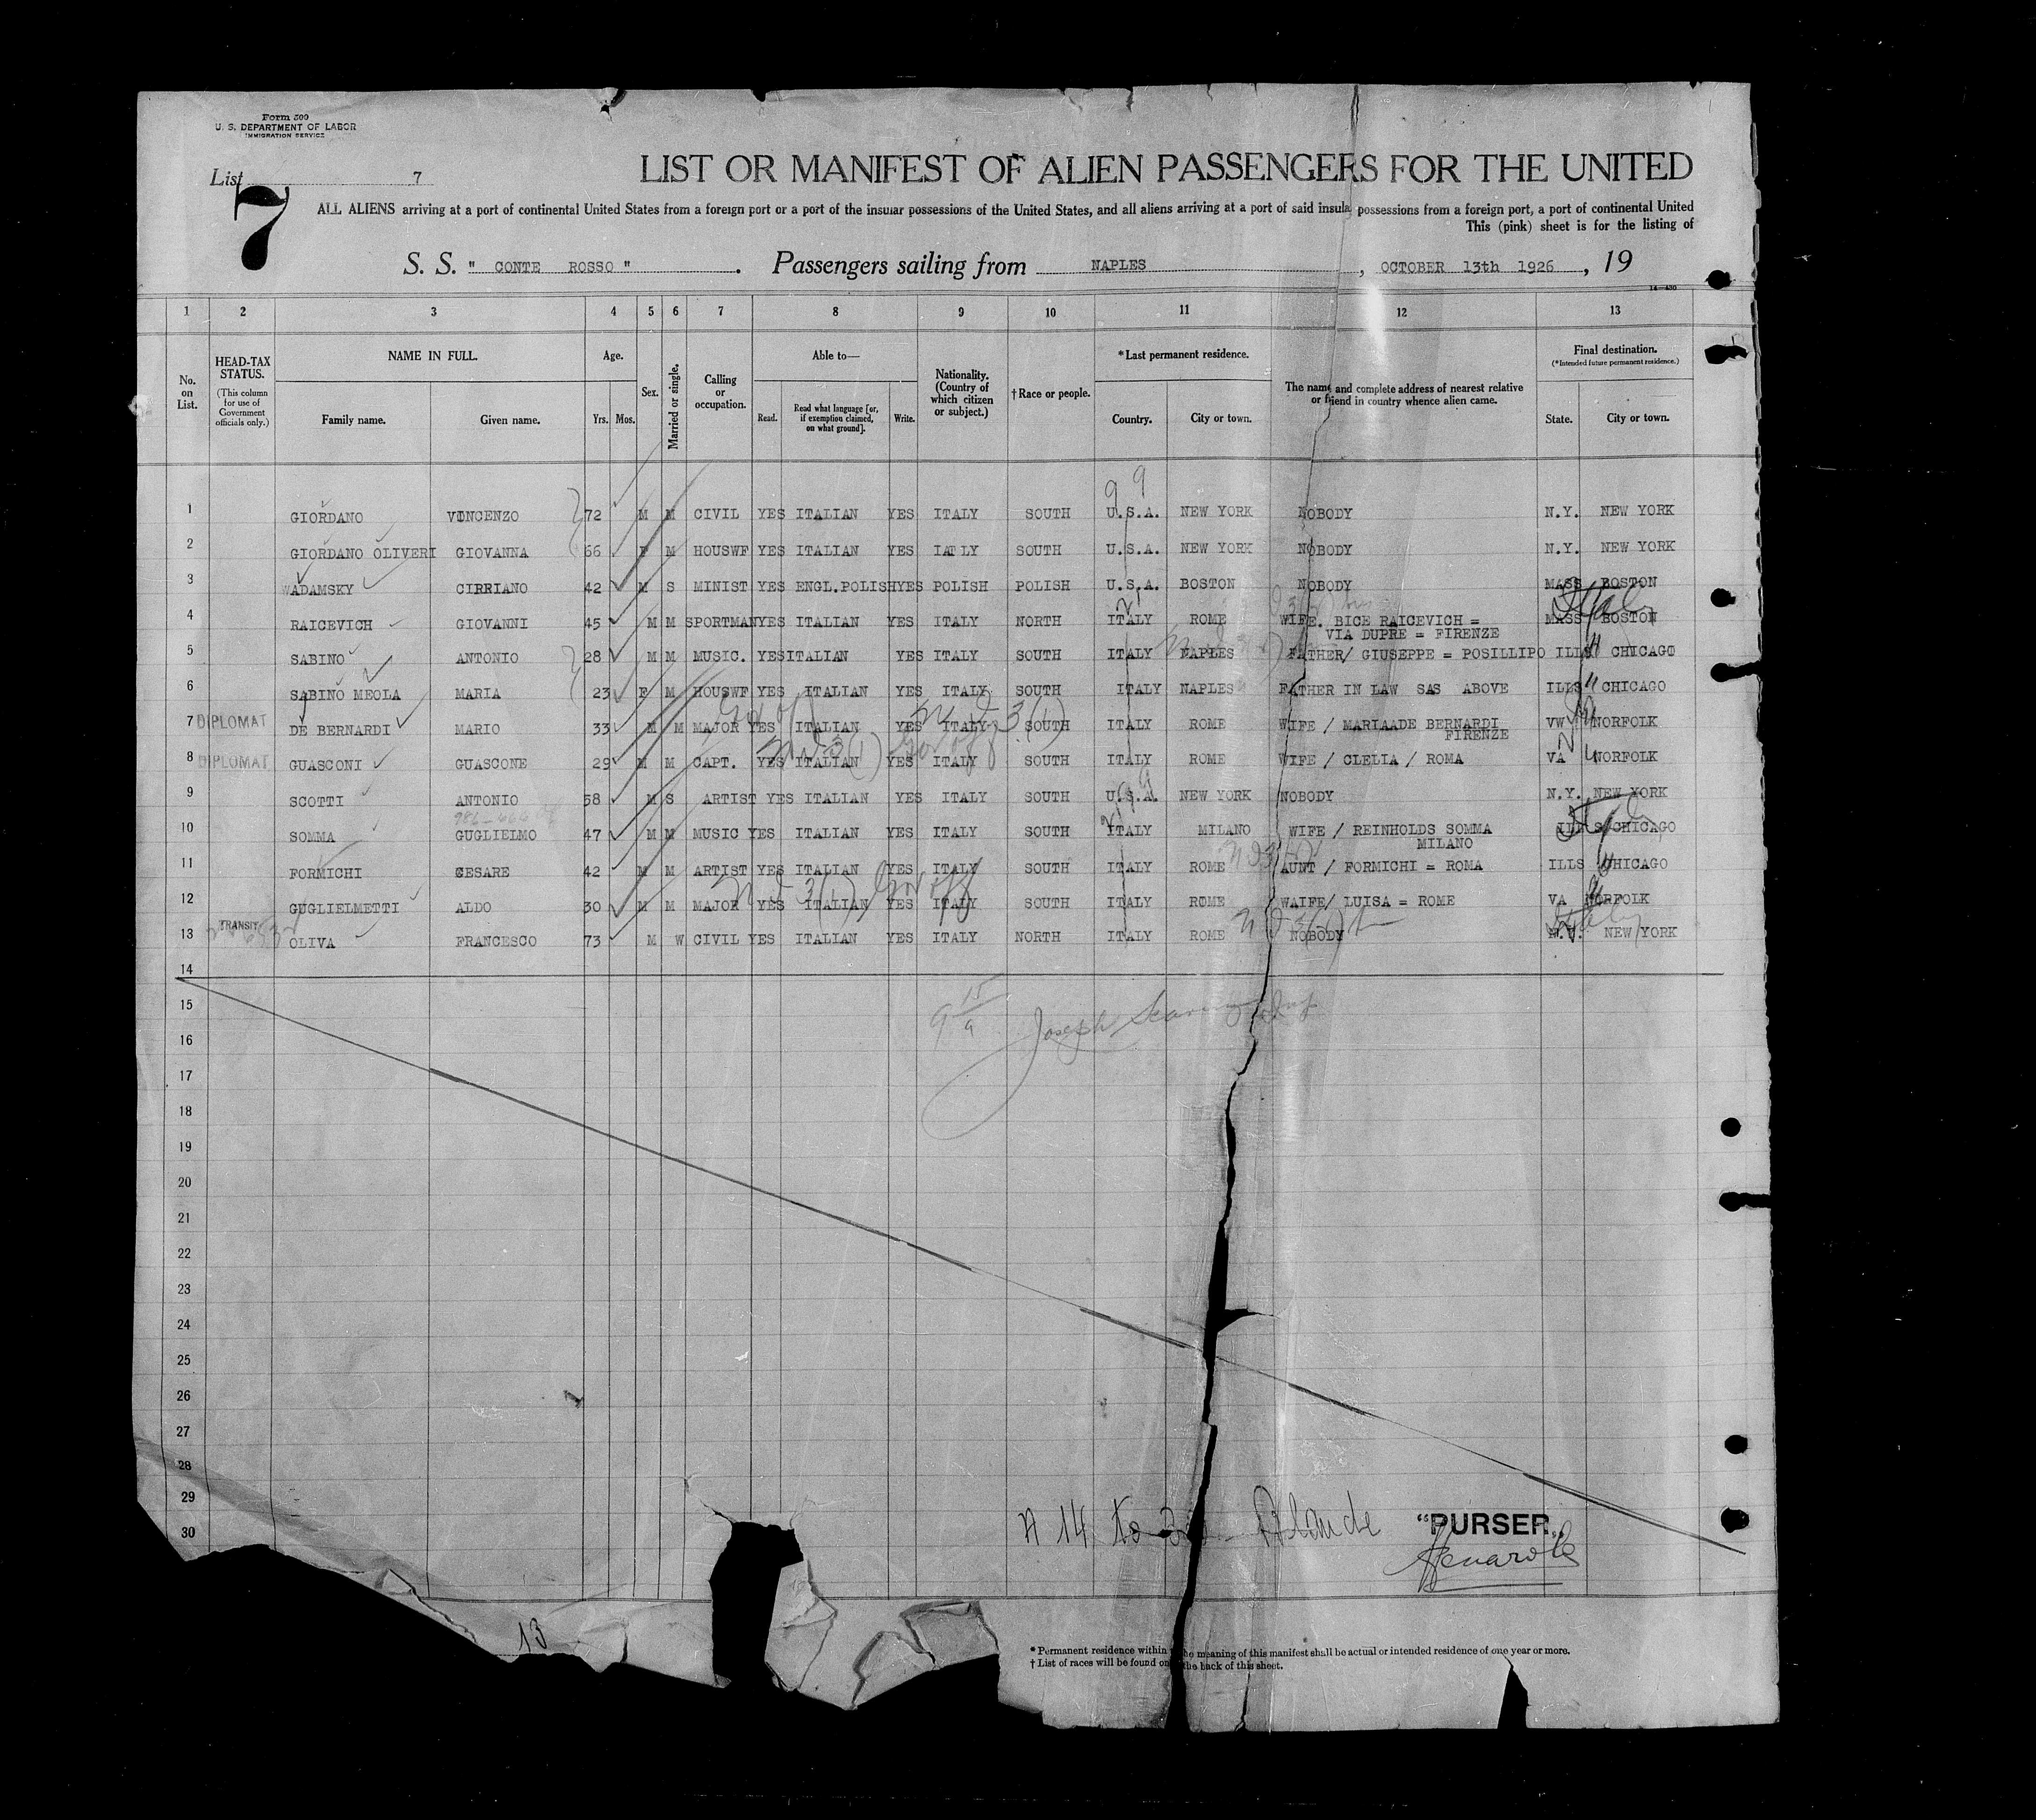 Form 500
U. S. DEPARTMENT OF LABOR
IMMIGRATION SERVICE
List 7
7
LIST OR MANIFEST OF ALIEN PASSENGERS FOR THE UNITED
ALL ALIENS arriving at a port of continental United States from a foreign port or a port of the insular possessions of the United States, and all aliens arriving at a port of said insula possessions from a foreign port, a port of continental United
This (pink) sheet is for the listing of
S. S. " CONTE ROSSO " . Passengers sailing from NAPLES , OCTOBER 13th 1926 , 19
14—430
1 2 3 4 5 6 7 8 9 10 11 12 13
No. on List.
HEAD-TAX STATUS. (This column for use of Government officials only.)
NAME IN FULL. Family name. Given name.
Age. Yrs. Mos.
Sex.
Married or single.
Calling or occupation.
Able to— Read. Read what language [or, if exemption claimed, on what ground]. Write.
Nationality. (Country of which citizen or subject.)
† Race or people.
* Last permanent residence. Country. City or town.
The name and complete address of nearest relative or friend in country whence alien came.
Final destination. (*Intended future permanent residence.) State. City or town.
9 9
1 GIORDANO VINCENZO 72 M M CIVIL YES ITALIAN YES ITALY SOUTH U.S.A. NEW YORK NOBODY N.Y. NEW YORK
2 GIORDANO OLIVERI GIOVANNA 66 F M HOUSWF YES ITALIAN YES IATLY SOUTH U.S.A. NEW YORK NOBODY N.Y. NEW YORK
3 WADAMSKY CIRRIANO 42 M S MINIST YES ENGL.POLISH YES POLISH POLISH U.S.A. BOSTON NOBODY MASS BOSTON
4 RAICEVICH GIOVANNI 45 M M SPORTMAN YES ITALIAN YES ITALY NORTH ITALY ROME WIFE. BICE RAICEVICH = MASS BOSTON
VIA DUPRE = FIRENZE
5 SABINO ANTONIO 28 M M MUSIC. YES ITALIAN YES ITALY SOUTH ITALY NAPLES FATHER/ GIUSEPPE = POSILLIPO ILLS CHICAGO
6 SABINO MEOLA MARIA 23 F M HOUSWF YES ITALIAN YES ITALY SOUTH ITALY NAPLES FATHER IN LAW SAS ABOVE ILLS CHICAGO
7 DIPLOMAT DE BERNARDI MARIO 33 M M MAJOR YES ITALIAN YES ITALY SOUTH ITALY ROME WIFE / MARIAADE BERNARDI VW NORFOLK
FIRENZE
8 DIPLOMAT GUASCONI GUASCONE 29 M M CAPT. YES ITALIAN YES ITALY SOUTH ITALY ROME WIFE / CLELIA / ROMA VA NORFOLK
9 SCOTTI ANTONIO 58 M S ARTIST YES ITALIAN YES ITALY SOUTH U.S.A. NEW YORK NOBODY N.Y. NEW YORK
10 SOMMA GUGLIELMO 47 M M MUSIC YES ITALIAN YES ITALY SOUTH ITALY MILANO WIFE / REINHOLDS SOMMA ILLS CHICAGO
MILANO
11 FORMICHI CESARE 42 M M ARTIST YES ITALIAN YES ITALY SOUTH ITALY ROME AUNT / FORMICHI = ROMA ILLS CHICAGO
12 GUGLIELMETTI ALDO 30 M M MAJOR YES ITALIAN YES ITALY SOUTH ITALY ROME WAIFE/ LUISA = ROME VA NORFOLK
TRANSIT
13 OLIVA FRANCESCO 73 M W CIVIL YES ITALIAN YES ITALY NORTH ITALY ROME NOBODY N.Y. NEW YORK
14
15
16
17
18
19
20
21
22
23
24
25
26
27
28
29
30
Joseph
N 14 to
"PURSER"
13
* Permanent residence within the meaning of this manifest shall be actual or intended residence of one year or more.
† List of races will be found on the back of this sheet.